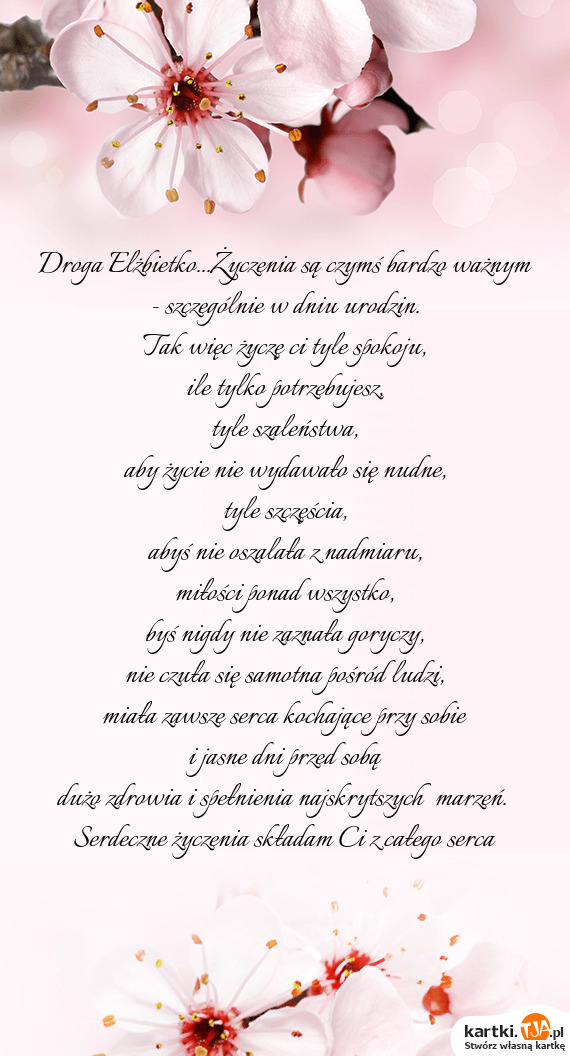 Droga Elżbietko...Życzenia są czymś bardzo ważnym
- szczególnie w dniu urodzin.
Tak więc życzę ci tyle spokoju,
ile tylko potrzebujesz,
tyle szaleństwa,
aby życie nie wydawało się nudne,
tyle szczęścia,
abyś nie oszalała z nadmiaru,
miłości ponad wszystko,
byś nigdy nie zaznała goryczy,
nie czuła się samotna pośród ludzi,
miała zawsze serca kochające przy sobie
i jasne dni przed sobą
dużo zdrowia i spełnienia najskrytszych  marzeń.
Serdeczne życzenia składam Ci z całego serca
kartki.TJA.pl
Stwórz własną kartkę